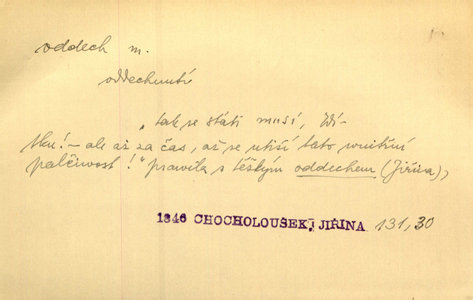 oddech m.
oddechnutí
„tak se státi musí, Ví-
tku! – ale až za čas, až se utiší tato vnitřní
palčivost!“ pravila s těžkým oddechem (Jiřina),
1846 CHOCHOLOUŠEK, JIŘINA 131,30